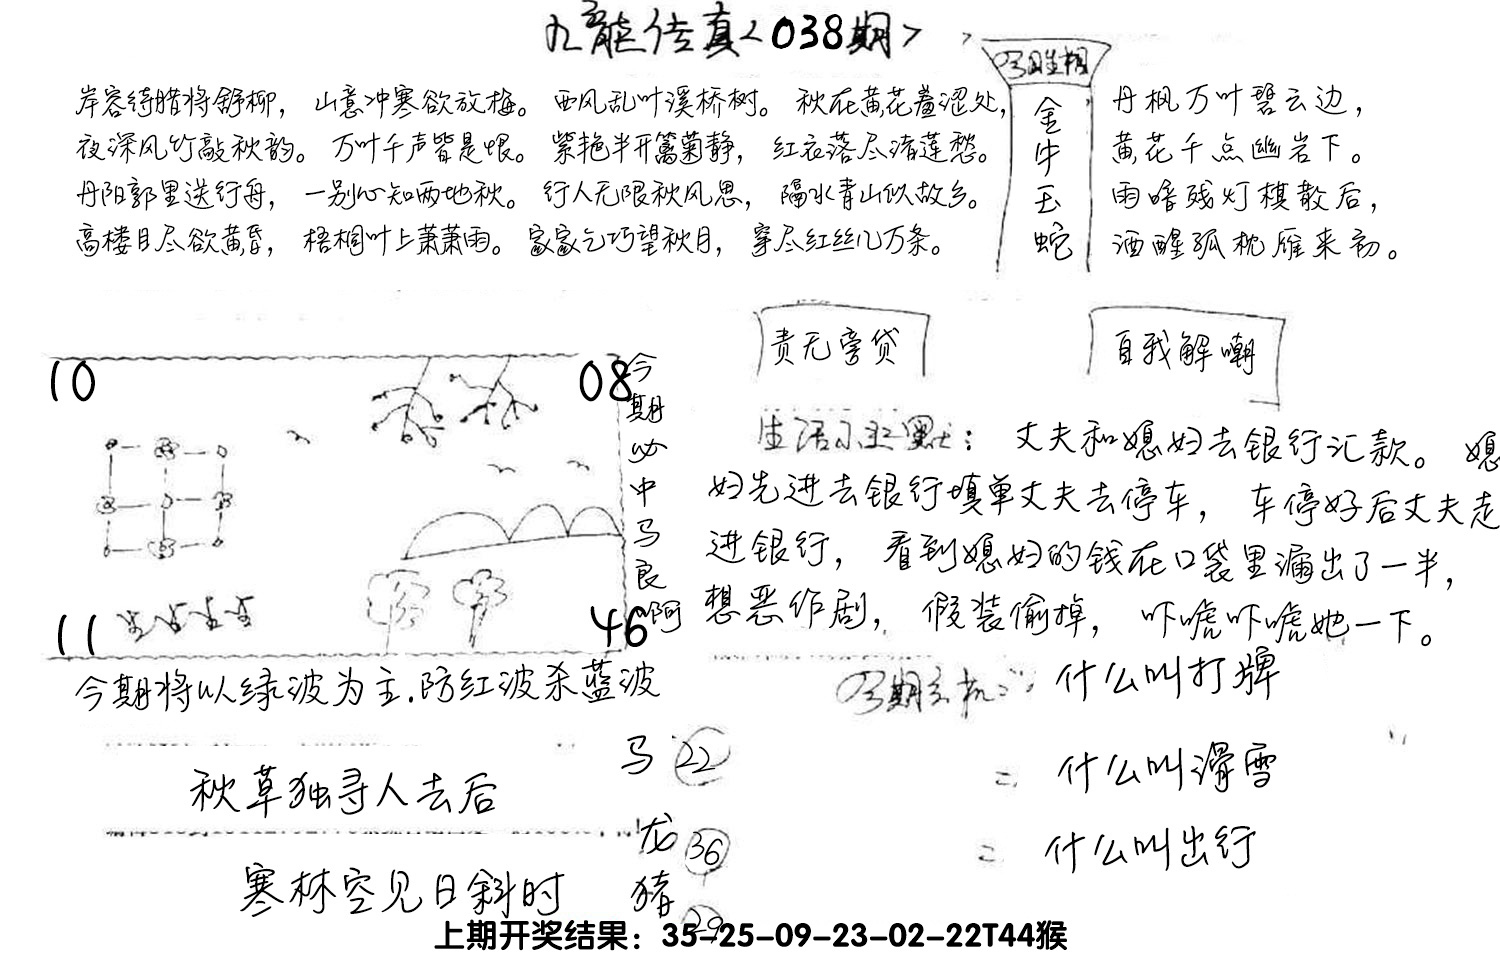 九龙传真<038期>
岸容待腊将舒柳，山意冲寒欲放梅。西风乱叶溪桥树。秋在黄花羞涩处，
夜深风竹敲秋韵。万叶千声皆是恨。紫艳半开篱菊静，红衣落尽渚莲愁。
丹阳郭里送行舟，一别心知两地秋。行人无限秋风思，隔水青山似故乡。
高楼目尽欲黄昏，梧桐叶上萧萧雨。家家乞巧望秋月，穿尽红丝几万条。
今期生相
金
牛
玉
蛇
丹枫万叶碧云边，
黄花千点幽岩下。
雨暗残灯棋散后，
酒醒孤枕雁来初。
10
08
11
46
今期必中马良啊
今期将以绿波为主.防红波杀蓝波
责无旁贷
自我解嘲
生活小幽默：丈夫和媳妇去银行汇款。媳
妇先进去银行填单丈夫去停车，车停好后丈夫走
进银行，看到媳妇的钱在口袋里漏出了一半，
想恶作剧，假装偷掉，吓唬吓唬她一下。
今期玄机:
什么叫打牌
= 什么叫滑雪
= 什么叫出行
秋草独寻人去后
寒林空见日斜时
马 22
龙 36
猪 29
上期开奖结果：35-25-09-23-02-22T44猴